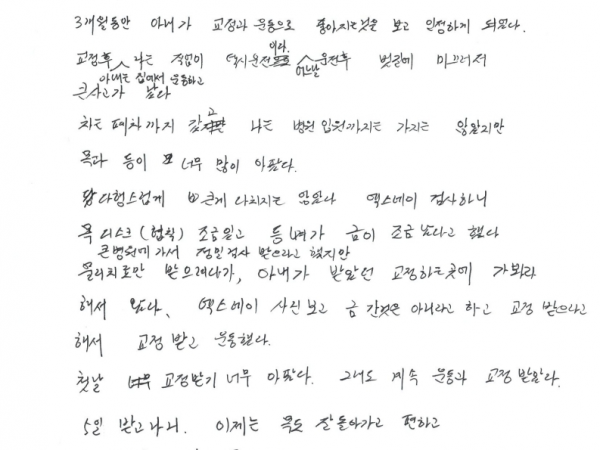 3개월동안 아내가 교정과 운동으로 좋아지는것을 보고 인정하게 되었다.
교정후 아내는 집에서 운동하고 나는 직업이 택시운전이라. 어느날 운전후 빗길에 미끄러져
큰사고가 났다
차는 폐차까지 갔고 나는 병원 입원까지는 가지는 않았지만
목과 등이 너무 많이 아팠다.
다행스럽게 크게 다치지는 않았다 엑스레이 검사하니
목 디스크(협착) 조금있고 등 뼈가 금이 조금 났다고 했다
큰병원에 가서 정밀검사 받으라고 했지만
물리치료만 받으려다가, 아내가 받았던 교정하는곳에 가봐라
해서 왔다. 엑스레이 사진보고 금 간것은 아니라고 하고 교정 받으라고
해서 교정 받고 운동했다.
첫날 교정받기 너무 아팠다. 그래도 계속 운동과 교정 받았다.
5일 받고나니. 이제는 목도 잘돌아가고 편하고